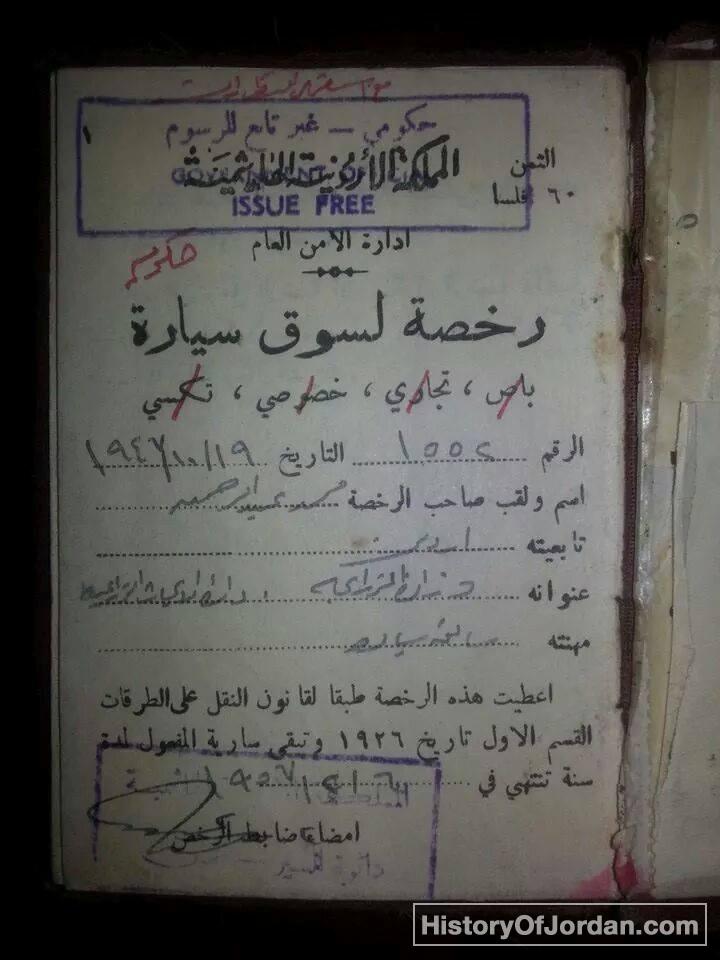 حكومي — غير تابع للرسوم
المملكة الأردنية الهاشمية
GOVERNMENT OFFICIAL
ISSUE FREE
الثمن
٦٠ فلسا
ادارة الأمن العام
رخصة لسوق سيارة
باص ، تجاري ، خصوصي ، تكسي
الرقم ١٥٥٢ التاريخ
اسم ولقب صاحب الرخصة
تابعيته
عنوانه وزارة الزراعة
مهنته سائق سيارة
اعطيت هذه الرخصة طبقا لقانون النقل على الطرقات
القسم الاول تاريخ ١٩٢٦ وتبقى سارية المفعول لمدة
سنة تنتهي في
امضاء ضابط الرخص
دائرة السير
HistoryOfJordan.com